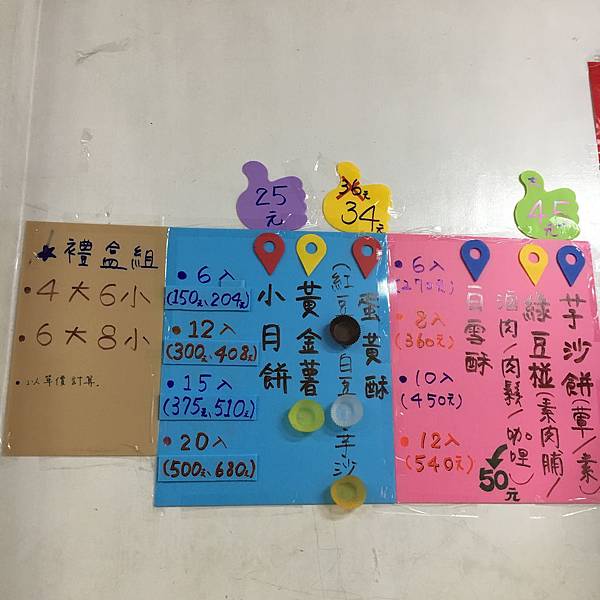 25元
36元
34元
45元
★禮盒組
•4大6小
•6大8小
•以單價計算。
•6入
(150元、204元)
•12入
(300元、408元)
•15入
(375元、510元)
•20入
(500元、680元)
蛋黃酥
(紅豆 白豆 芋沙
黃金薯
小月餅
•6入
(270元)
•8入
(360元)
•10入
(450元)
•12入
(540元)
芋沙餅(葷/素)
綠豆椪(素肉脯/
滷肉/肉鬆/咖哩)
50元
白雪酥